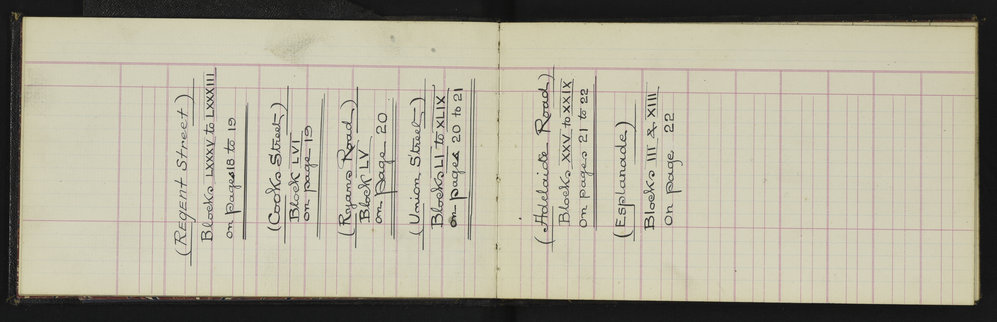 (Regent Street)
Blocks LXXXV to LXXXIII
on pages 18 to 19
(Cooks Street)
Block LVI
on page 19
(Ryans Road)
Block LV
on page 20
(Union Street)
Blocks LI to XLIX
on pages 20 to 21
(Adelaide Road)
Blocks XXV to XXIX
on pages 21 to 22
(Esplanade)
Blocks III & XIII
on page 22